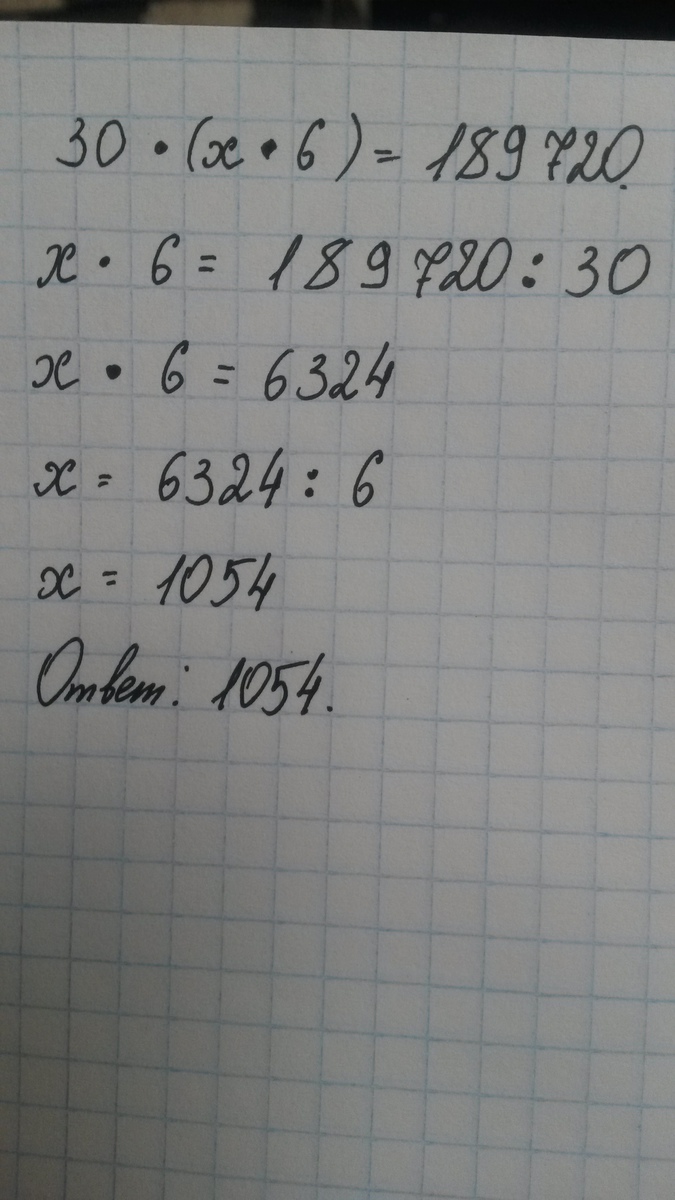 30 • (x • 6) = 189 720.
x • 6 = 189 720 : 30
x • 6 = 6324
x = 6324 : 6
x = 1054
Ответ: 1054.